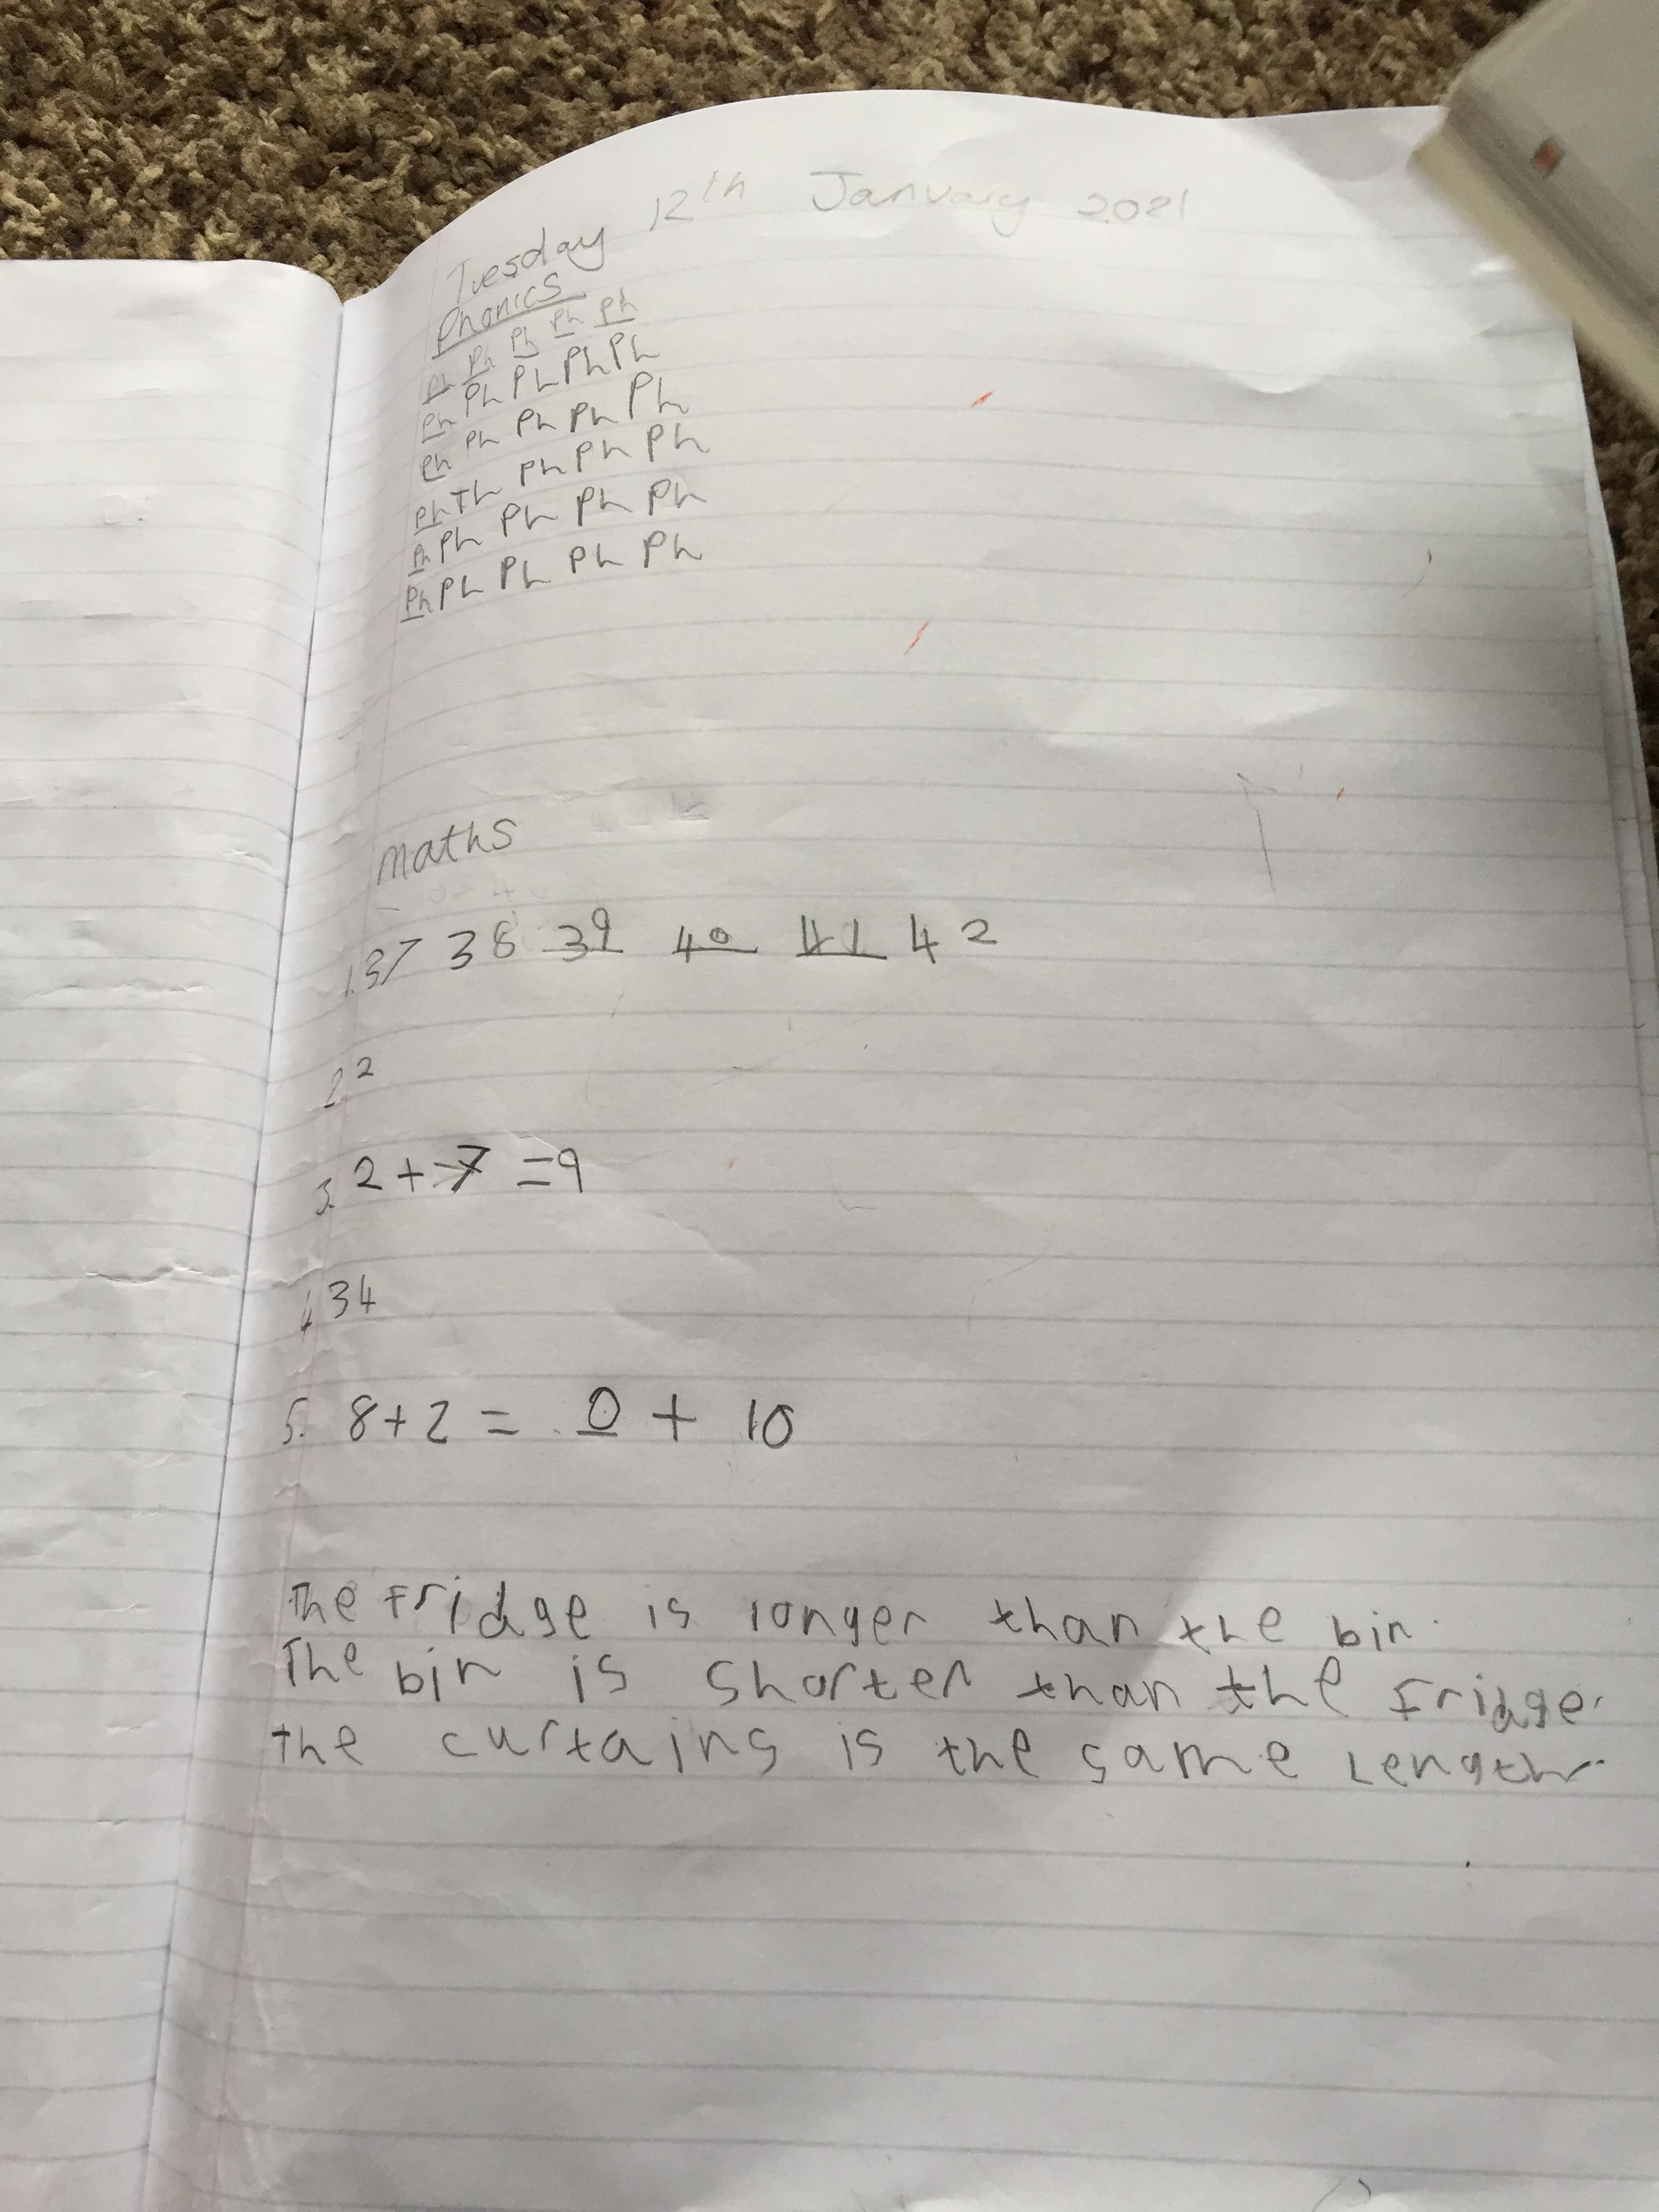 Tuesday 12th January 2021
Phonics
Ph Ph Ph Ph Ph
Ph Ph Ph Ph Ph
Ph Ph Ph Ph Ph
Ph Th Ph Ph Ph
Ph Ph Ph Ph Ph
Ph Ph Ph Ph Ph
maths
1. 37 38 39 40 41 42
2. 2
3. 2 + 7 = 9
4. 34
5. 8 + 2 = 0 + 10
The fridge is longer than the bin.
The bin is shorter than the fridge.
the curtains is the same length.